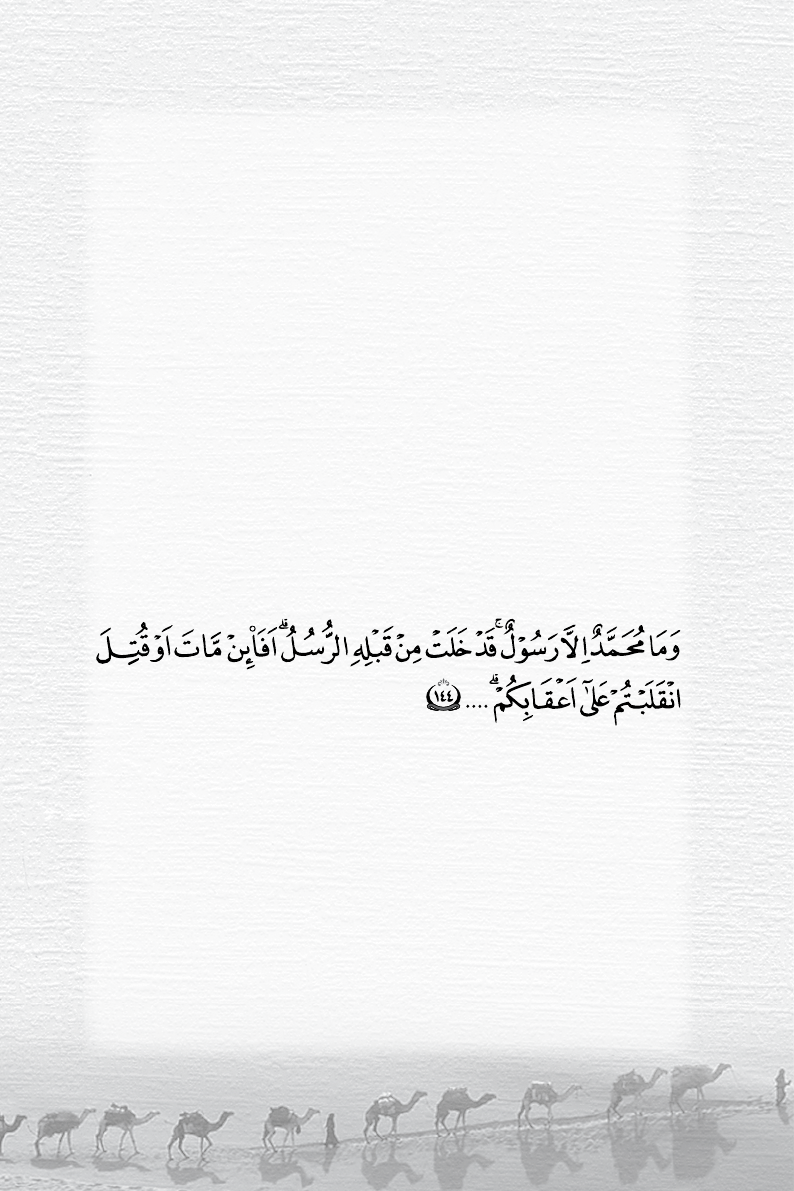 وَمَا مُحَمَّدٌ اِلَّا رَسُوْلٌ ۚ قَدْ خَلَتْ مِنْ قَبْلِهِ الرُّسُلُ ؕ اَفَا۟ئِنْ مَّاتَ اَوْ قُتِلَ
انْقَلَبْتُمْ عَلٰٓى اَعْقَابِكُمْ ؕ .... ﴿١٤٤﴾